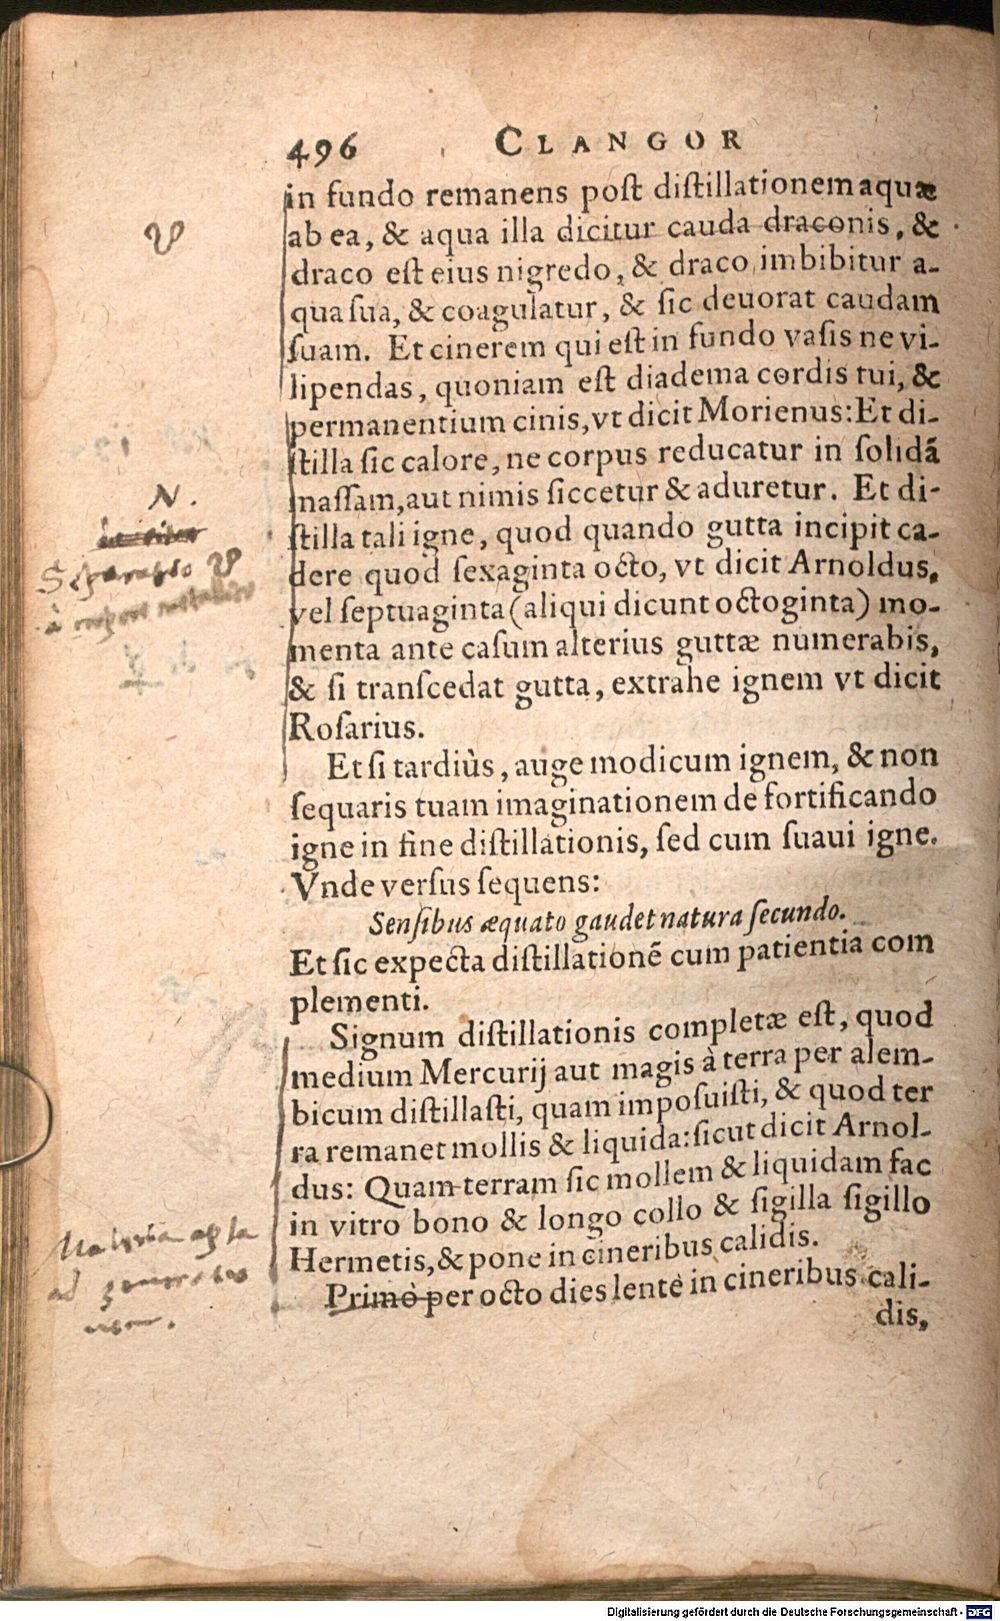 496 CLANGOR
in fundo remanens poſt diſtillationem aquæ
ab ea, & aqua illa dicitur cauda draconis, &
draco eſt eius nigredo, & draco imbibitur a-
qua ſua, & coagulatur, & ſic deuorat caudam
ſuam. Et cinerem qui eſt in fundo vaſis ne vi-
lipendas, quoniam eſt diadema cordis tui, &
permanentium cinis, vt dicit Morienus: Et di-
ſtilla ſic calore, ne corpus reducatur in ſolidã
maſſam, aut nimis ſiccetur & aduretur. Et di-
N.
ſtilla tali igne, quod quando gutta incipit ca-
Separatio
dere quod ſexaginta octo, vt dicit Arnoldus,
à corpore
vel ſeptuaginta (aliqui dicunt octoginta) mo-
menta ante caſum alterius guttæ numerabis,
& ſi tranſcedat gutta, extrahe ignem vt dicit
Roſarius.
Et ſi tardiùs, auge modicum ignem, & non
ſequaris tuam imaginationem de fortificando
igne in fine diſtillationis, ſed cum ſuaui igne.
Vnde verſus ſequens:
Senſibus æquato gaudet natura ſecundo.
Et ſic expecta diſtillationẽ cum patientia com
plementi.
Signum diſtillationis completæ eſt, quod
medium Mercurij aut magis à terra per alem-
bicum diſtillaſti, quam impoſuiſti, & quod ter
ra remanet mollis & liquida: ſicut dicit Arnol-
dus: Quam terram ſic mollem & liquidam fac
in vitro bono & longo collo & ſigilla ſigillo
Materia apta
Hermetis, & pone in cineribus calidis.
ad
Primò per octo dies lentè in cineribus cali-
dis,
Digitalisierung gefördert durch die Deutsche Forschungsgemeinschaft - DFG